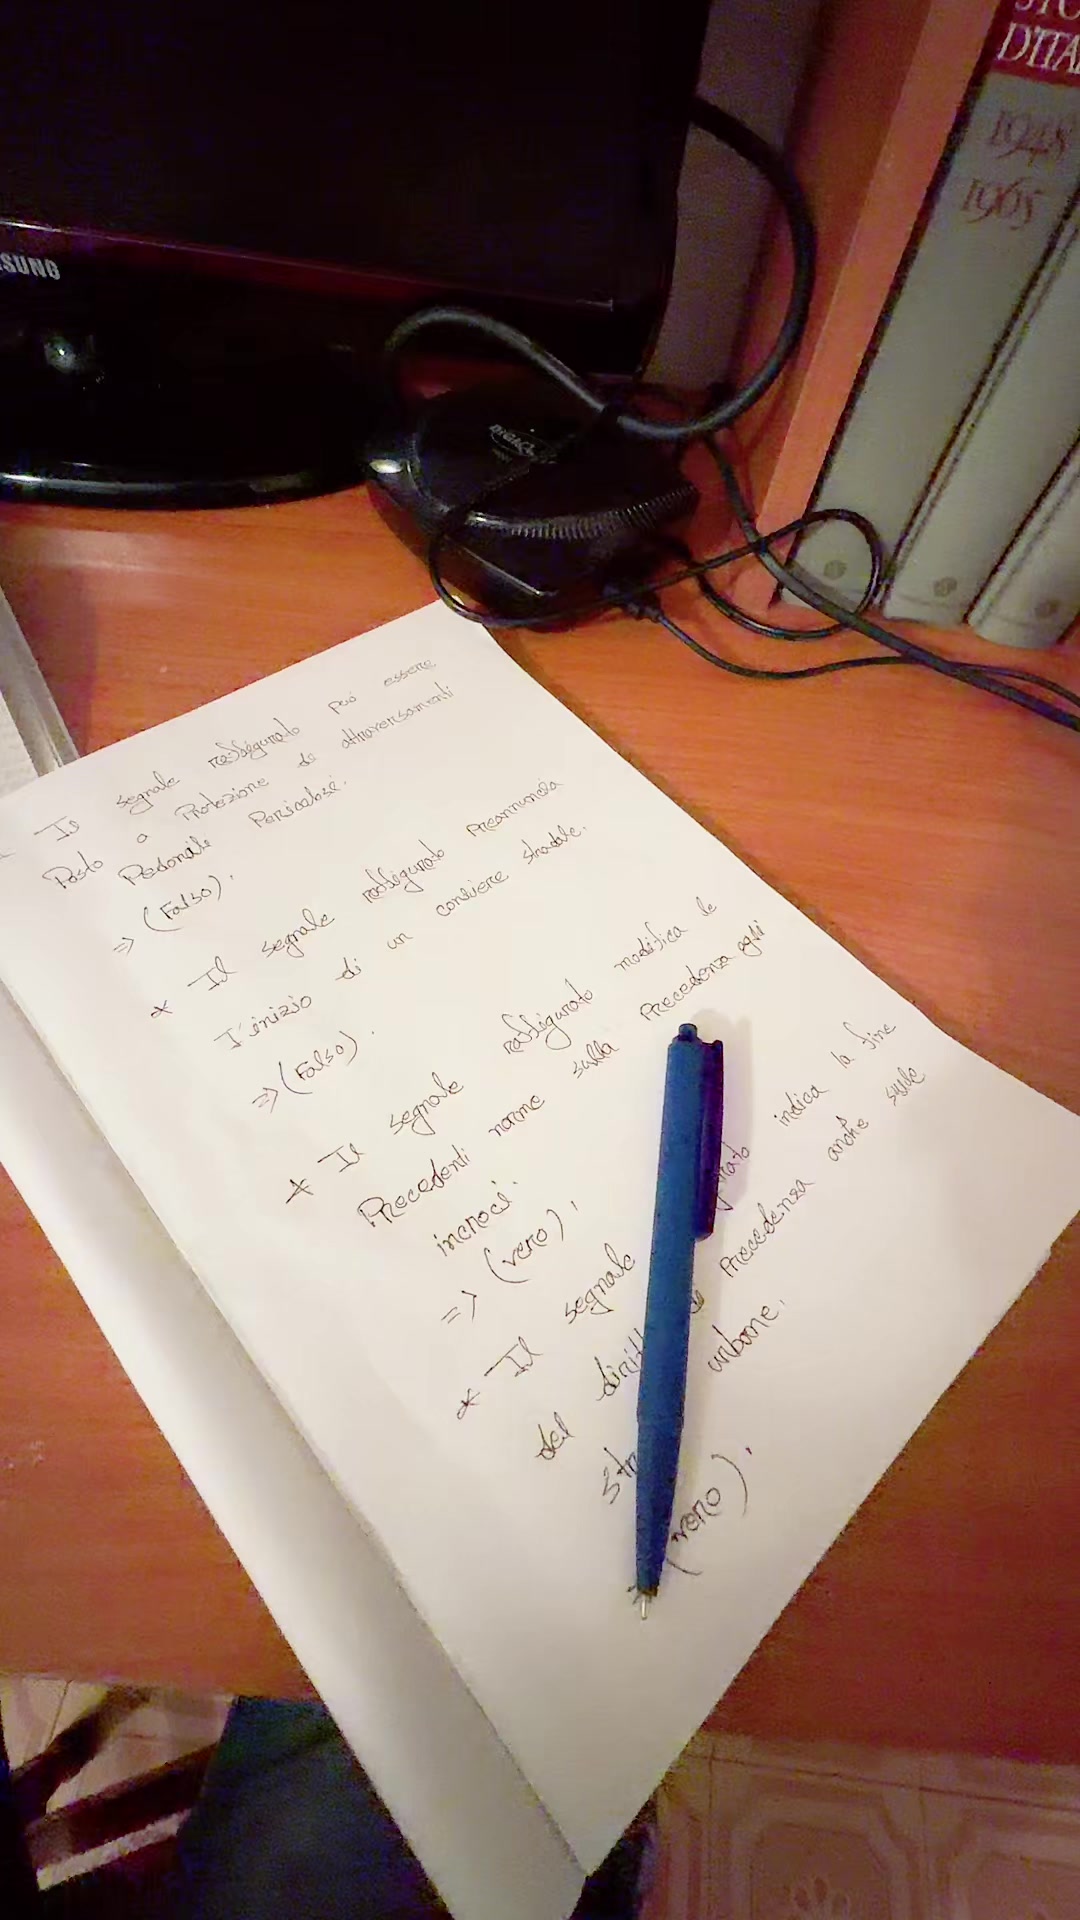 STO
D'ITA
1948
1965
SUNG
DIGIC
Il segnale raffigurato può essere
Posto a Protezione di attraversamenti
Pedonali Pericolosi.
=> (Falso).
* Il segnale raffigurato Preannuncia
l'inizio di un cantiere stradale.
=> (Falso).
* Il segnale raffigurato modifica le
Precedenti norme sulla Precedenza agli
incroci.
=> (vero).
* Il segnale gurato indica la fine
del diritt di Precedenza anche sulle
str urbane.
(vero).